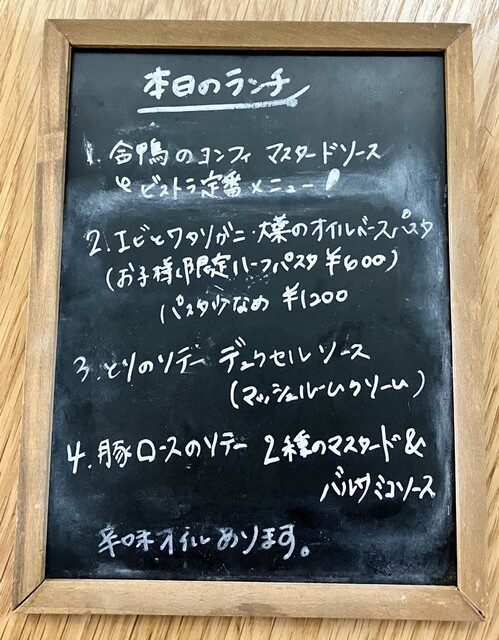 本日のランチ
1. 合鴨のコンフィ マスタードソース
ビストラ定番メニュー!
2. エビとワタリガニ・大葉のオイルベースパスタ
(お子様限定ハーフパスタ ¥600)
パスタ少なめ ¥1200
3. とりのソテー デュクセルソース
(マッシュルームクリーム)
4. 豚ロースのソテー 2種のマスタード&
バルサミコソース
辛味オイルあります。